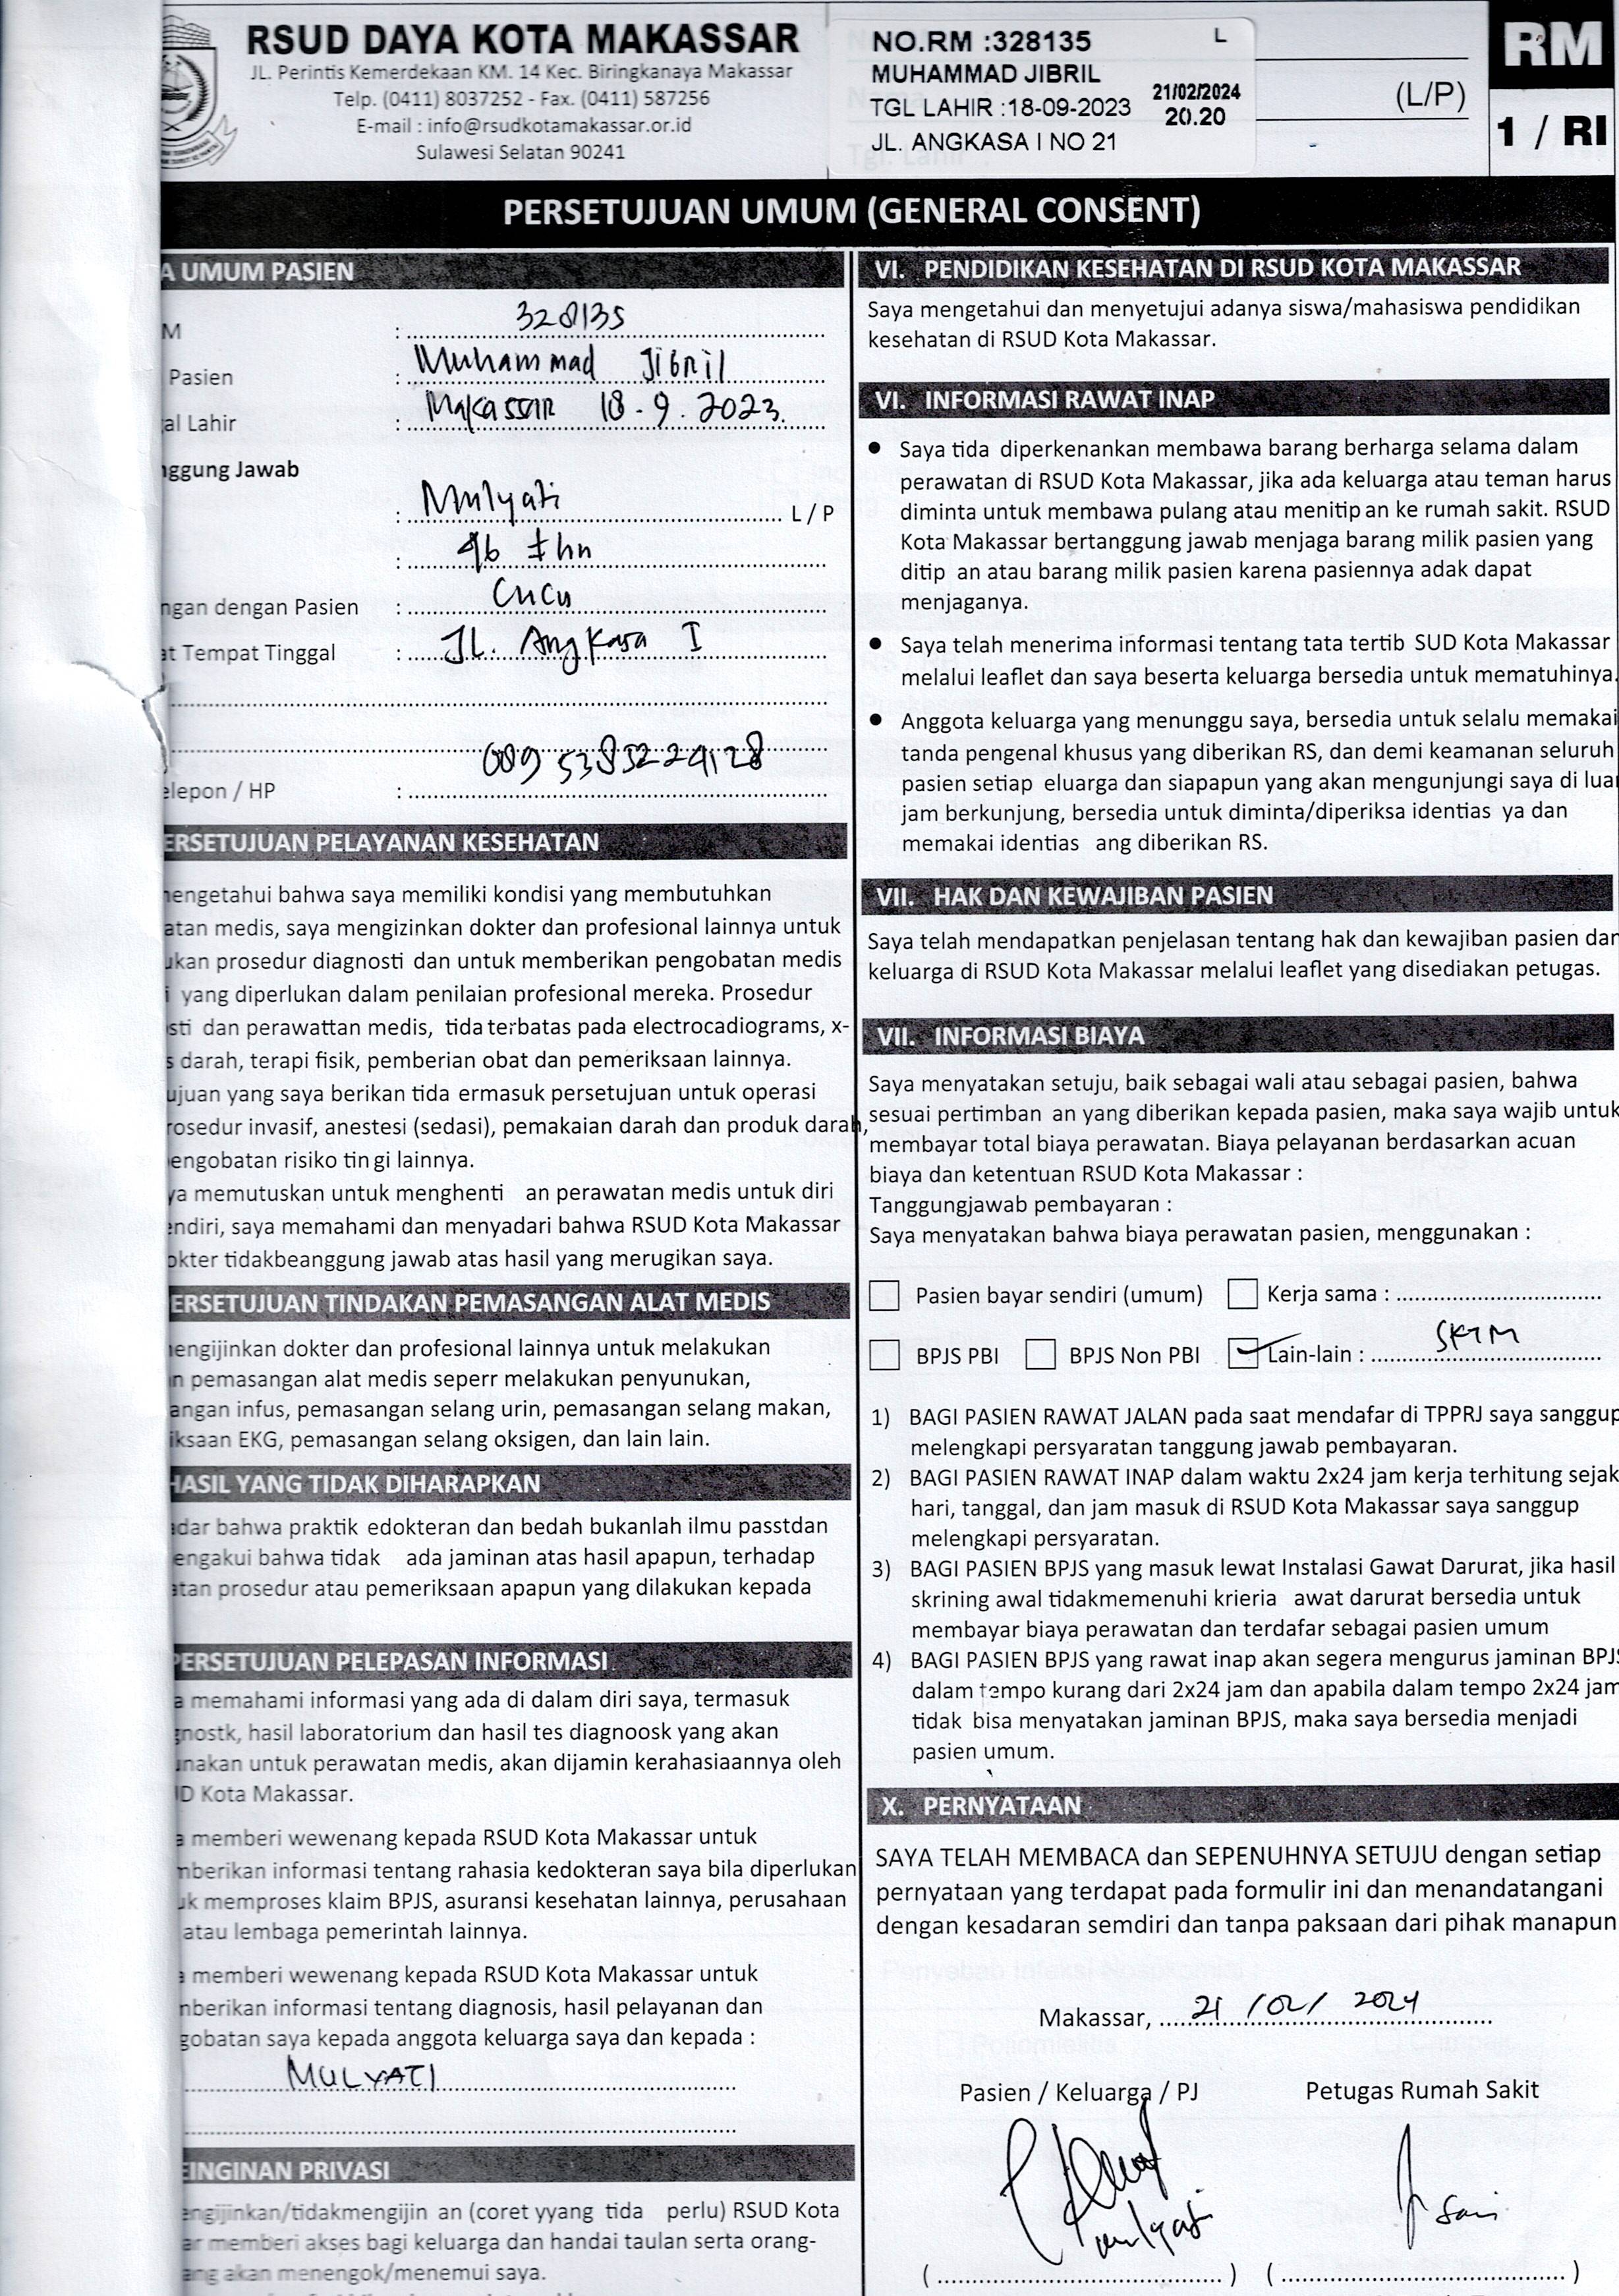 RSUD DAYA KOTA MAKASSAR
JL. Perintis Kemerdekaan KM. 14 Kec. Biringkanaya Makassar
Telp. (0411) 8037252 - Fax. (0411) 587256
E-mail : info@rsudkotamakassar.or.id
Sulawesi Selatan 90241
NO.RM :328135 L
MUHAMMAD JIBRIL
TGL LAHIR :18-09-2023
21/02/2024
20.20
JL. ANGKASA I NO 21
(L/P)
RM
1 / RI
PERSETUJUAN UMUM (GENERAL CONSENT)
A UMUM PASIEN
M : 328135
Pasien : Muhammad Jibril
al Lahir : Makassar 18-9.2023.
nggung Jawab
: Mulyati L / P
: 46 thn
ngan dengan Pasien : Cucu
at Tempat Tinggal : JL. Angkasa I
elepon / HP :
ERSETUJUAN PELAYANAN KESEHATAN
engetahui bahwa saya memiliki kondisi yang membutuhkan
atan medis, saya mengizinkan dokter dan profesional lainnya untuk
ukan prosedur diagnosti dan untuk memberikan pengobatan medis
i yang diperlukan dalam penilaian profesional mereka. Prosedur
sti dan perawattan medis, tida terbatas pada electrocadiograms, x-
s darah, terapi fisik, pemberian obat dan pemeriksaan lainnya.
ujuan yang saya berikan tida ermasuk persetujuan untuk operasi
rosedur invasif, anestesi (sedasi), pemakaian darah dan produk darah,
engobatan risiko tin gi lainnya.
ya memutuskan untuk menghenti an perawatan medis untuk diri
endiri, saya memahami dan menyadari bahwa RSUD Kota Makassar
okter tidakbeanggung jawab atas hasil yang merugikan saya.
ERSETUJUAN TINDAKAN PEMASANGAN ALAT MEDIS
engijinkan dokter dan profesional lainnya untuk melakukan
n pemasangan alat medis seperr melakukan penyunukan,
angan infus, pemasangan selang urin, pemasangan selang makan,
iksaan EKG, pemasangan selang oksigen, dan lain lain.
HASIL YANG TIDAK DIHARAPKAN
dar bahwa praktik edokteran dan bedah bukanlah ilmu passtdan
engakui bahwa tidak ada jaminan atas hasil apapun, terhadap
atan prosedur atau pemeriksaan apapun yang dilakukan kepada
PERSETUJUAN PELEPASAN INFORMASI
a memahami informasi yang ada di dalam diri saya, termasuk
gnostk, hasil laboratorium dan hasil tes diagnoosk yang akan
unakan untuk perawatan medis, akan dijamin kerahasiaannya oleh
D Kota Makassar.
a memberi wewenang kepada RSUD Kota Makassar untuk
mberikan informasi tentang rahasia kedokteran saya bila diperlukan
uk memproses klaim BPJS, asuransi kesehatan lainnya, perusahaan
atau lembaga pemerintah lainnya.
a memberi wewenang kepada RSUD Kota Makassar untuk
mberikan informasi tentang diagnosis, hasil pelayanan dan
gobatan saya kepada anggota keluarga saya dan kepada :
MULYATI
EINGINAN PRIVASI
engijinkan/tidakmengijin an (coret yyang tida perlu) RSUD Kota
ar memberi akses bagi keluarga dan handai taulan serta orang-
ang akan menengok/menemui saya.
VI. PENDIDIKAN KESEHATAN DI RSUD KOTA MAKASSAR
Saya mengetahui dan menyetujui adanya siswa/mahasiswa pendidikan
kesehatan di RSUD Kota Makassar.
VI. INFORMASI RAWAT INAP
● Saya tida diperkenankan membawa barang berharga selama dalam
perawatan di RSUD Kota Makassar, jika ada keluarga atau teman harus
diminta untuk membawa pulang atau menitip an ke rumah sakit. RSUD
Kota Makassar bertanggung jawab menjaga barang milik pasien yang
ditip an atau barang milik pasien karena pasiennya adak dapat
menjaganya.
● Saya telah menerima informasi tentang tata tertib SUD Kota Makassar
melalui leaflet dan saya beserta keluarga bersedia untuk mematuhinya.
● Anggota keluarga yang menunggu saya, bersedia untuk selalu memakai
tanda pengenal khusus yang diberikan RS, dan demi keamanan seluruh
pasien setiap eluarga dan siapapun yang akan mengunjungi saya di luar
jam berkunjung, bersedia untuk diminta/diperiksa identias ya dan
memakai identias ang diberikan RS.
VII. HAK DAN KEWAJIBAN PASIEN
Saya telah mendapatkan penjelasan tentang hak dan kewajiban pasien dan
keluarga di RSUD Kota Makassar melalui leaflet yang disediakan petugas.
VII. INFORMASI BIAYA
Saya menyatakan setuju, baik sebagai wali atau sebagai pasien, bahwa
sesuai pertimban an yang diberikan kepada pasien, maka saya wajib untuk
membayar total biaya perawatan. Biaya pelayanan berdasarkan acuan
biaya dan ketentuan RSUD Kota Makassar :
Tanggungjawab pembayaran :
Saya menyatakan bahwa biaya perawatan pasien, menggunakan :
Pasien bayar sendiri (umum) Kerja sama :
BPJS PBI BPJS Non PBI Lain-lain : SKTM
1) BAGI PASIEN RAWAT JALAN pada saat mendafar di TPPRJ saya sanggup
melengkapi persyaratan tanggung jawab pembayaran.
2) BAGI PASIEN RAWAT INAP dalam waktu 2x24 jam kerja terhitung sejak
hari, tanggal, dan jam masuk di RSUD Kota Makassar saya sanggup
melengkapi persyaratan.
3) BAGI PASIEN BPJS yang masuk lewat Instalasi Gawat Darurat, jika hasil
skrining awal tidakmemenuhi krieria awat darurat bersedia untuk
membayar biaya perawatan dan terdafar sebagai pasien umum
4) BAGI PASIEN BPJS yang rawat inap akan segera mengurus jaminan BPJS
dalam tempo kurang dari 2x24 jam dan apabila dalam tempo 2x24 jam
tidak bisa menyatakan jaminan BPJS, maka saya bersedia menjadi
pasien umum.
X. PERNYATAAN
SAYA TELAH MEMBACA dan SEPENUHNYA SETUJU dengan setiap
pernyataan yang terdapat pada formulir ini dan menandatangani
dengan kesadaran semdiri dan tanpa paksaan dari pihak manapun
Makassar, 21 /02/ 2024
Pasien / Keluarga / PJ Petugas Rumah Sakit
mulyati Sari